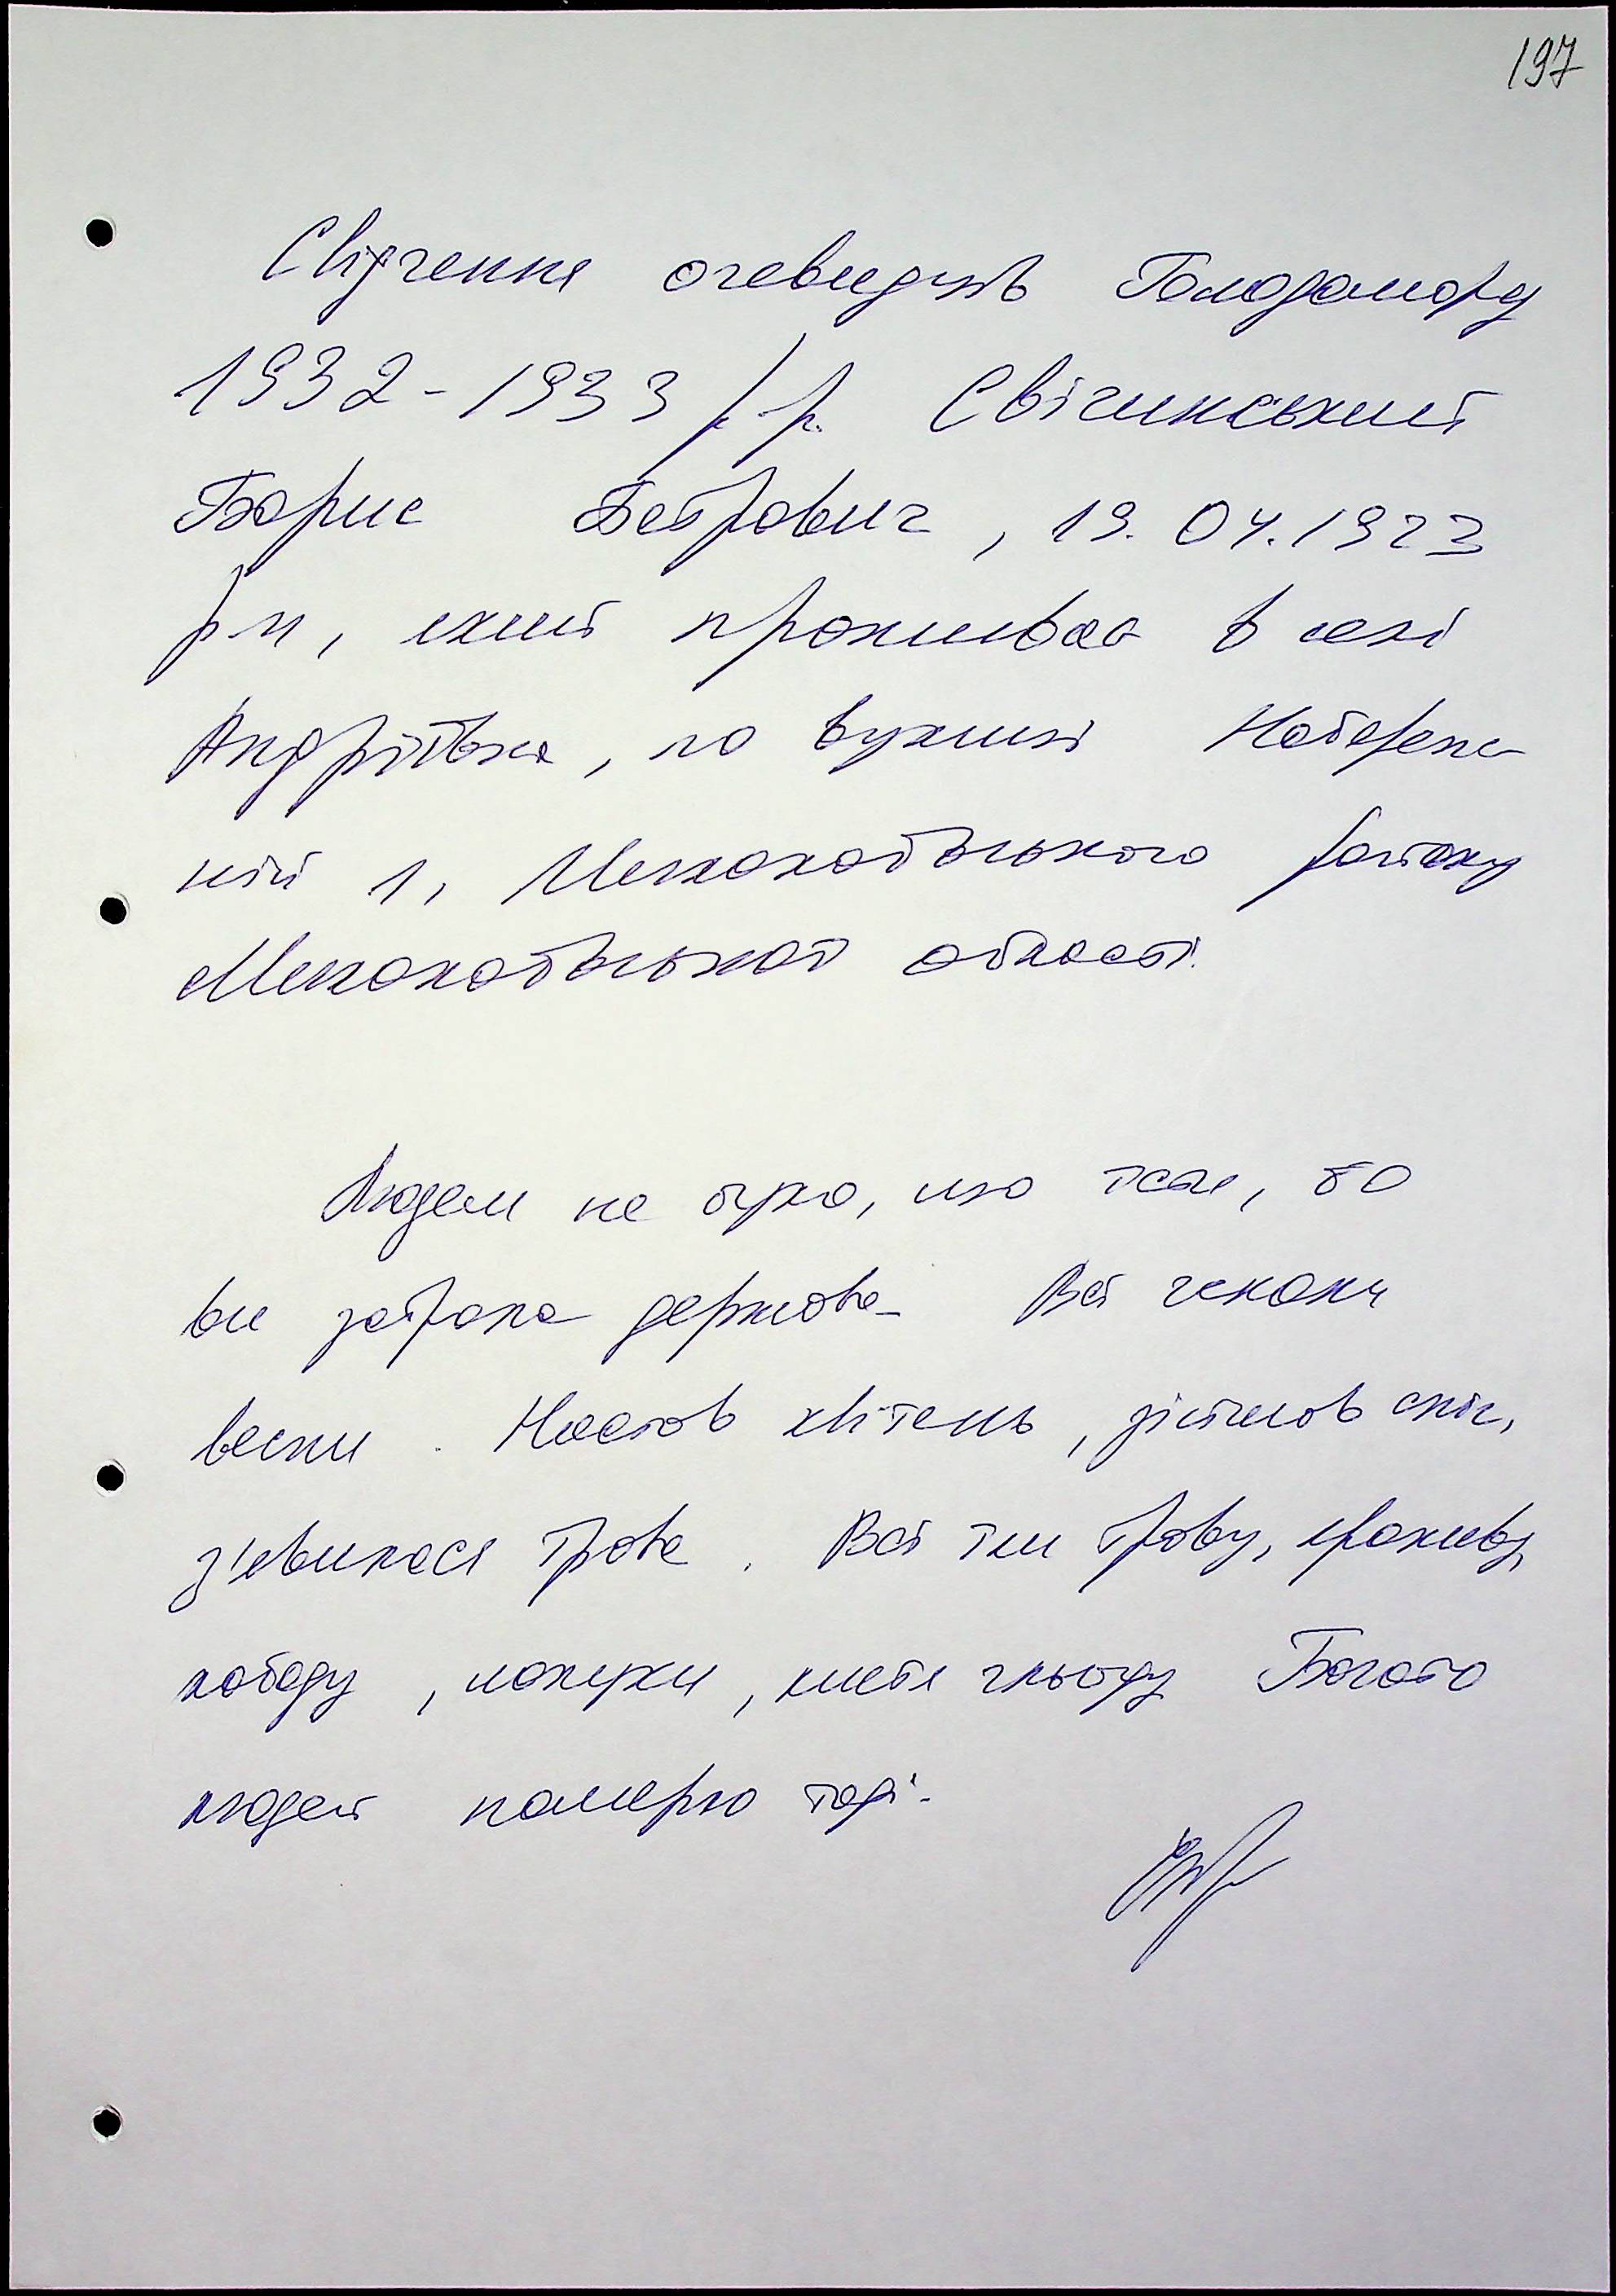 197
Свідчення очевидців Голодомору
1932-1933 р.р. Свічинський
Борис Петрович, 19.04.1923
р.н, який проживає в селі
Андріївка, по вулиці Набереж
ній 1, Миколаївського району
Миколаївської області.
Людям не було, що їсти, бо
все забрала держава. Всі чекали
весни. Настав квітень, розтанув сніг,
з'явилася трава. Всі їли траву, кропиву,
лободу, лопухи, листя глоду Багато
людей померло тоді.